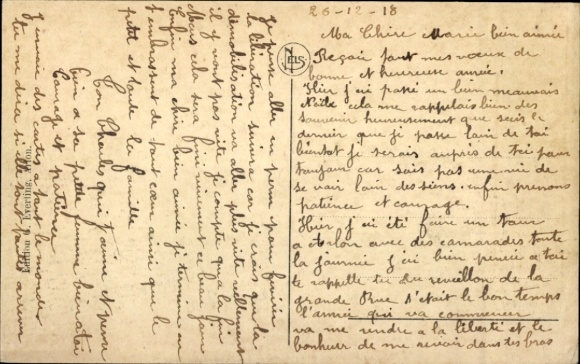 26-12-18
Ma Chère Marie bien aimée
Reçoie tout mes vœux de
bonne et heureuse année.
Hier j'ai passé un bien meauvais
Noële cela me rappelais bien des
souvenir heureusement que seis le
dernier que je passe loin de toi
bientot je serais auprès de toi pour
toujour car sais pas une vie de
se voir loin des siens. enfin prenons
patience et courage.
Hier j'ai été faire un tour
a Arlon avec des camarades toute
la journée j'ai bien pensée a toi
te rappelle tu du reveillon de la
grande Rue s'était le bon temps
l'année qui va commencer
va me rendre a la liberté et le
bonheur de me revoir dans tes bras
Je pense aller en perm pour fevrier
la liberation suivra car je crois que la
demobilisation va aller plus vite reellement
il y vont pas vite je compte que a la fin
Mars cela sera fini vivement ce beau jour
Enfin ma chère bien aimée je termine en
t'embrassent de tout cœur ainsi que le
petit et toute la famille
Ton Charles qui t'aime et pense
bien a sa petite femme bien a toi
Courage et patience
J'envoie des cartes a tout le monde
tu me dira si elle sont toutes arriver
ELD